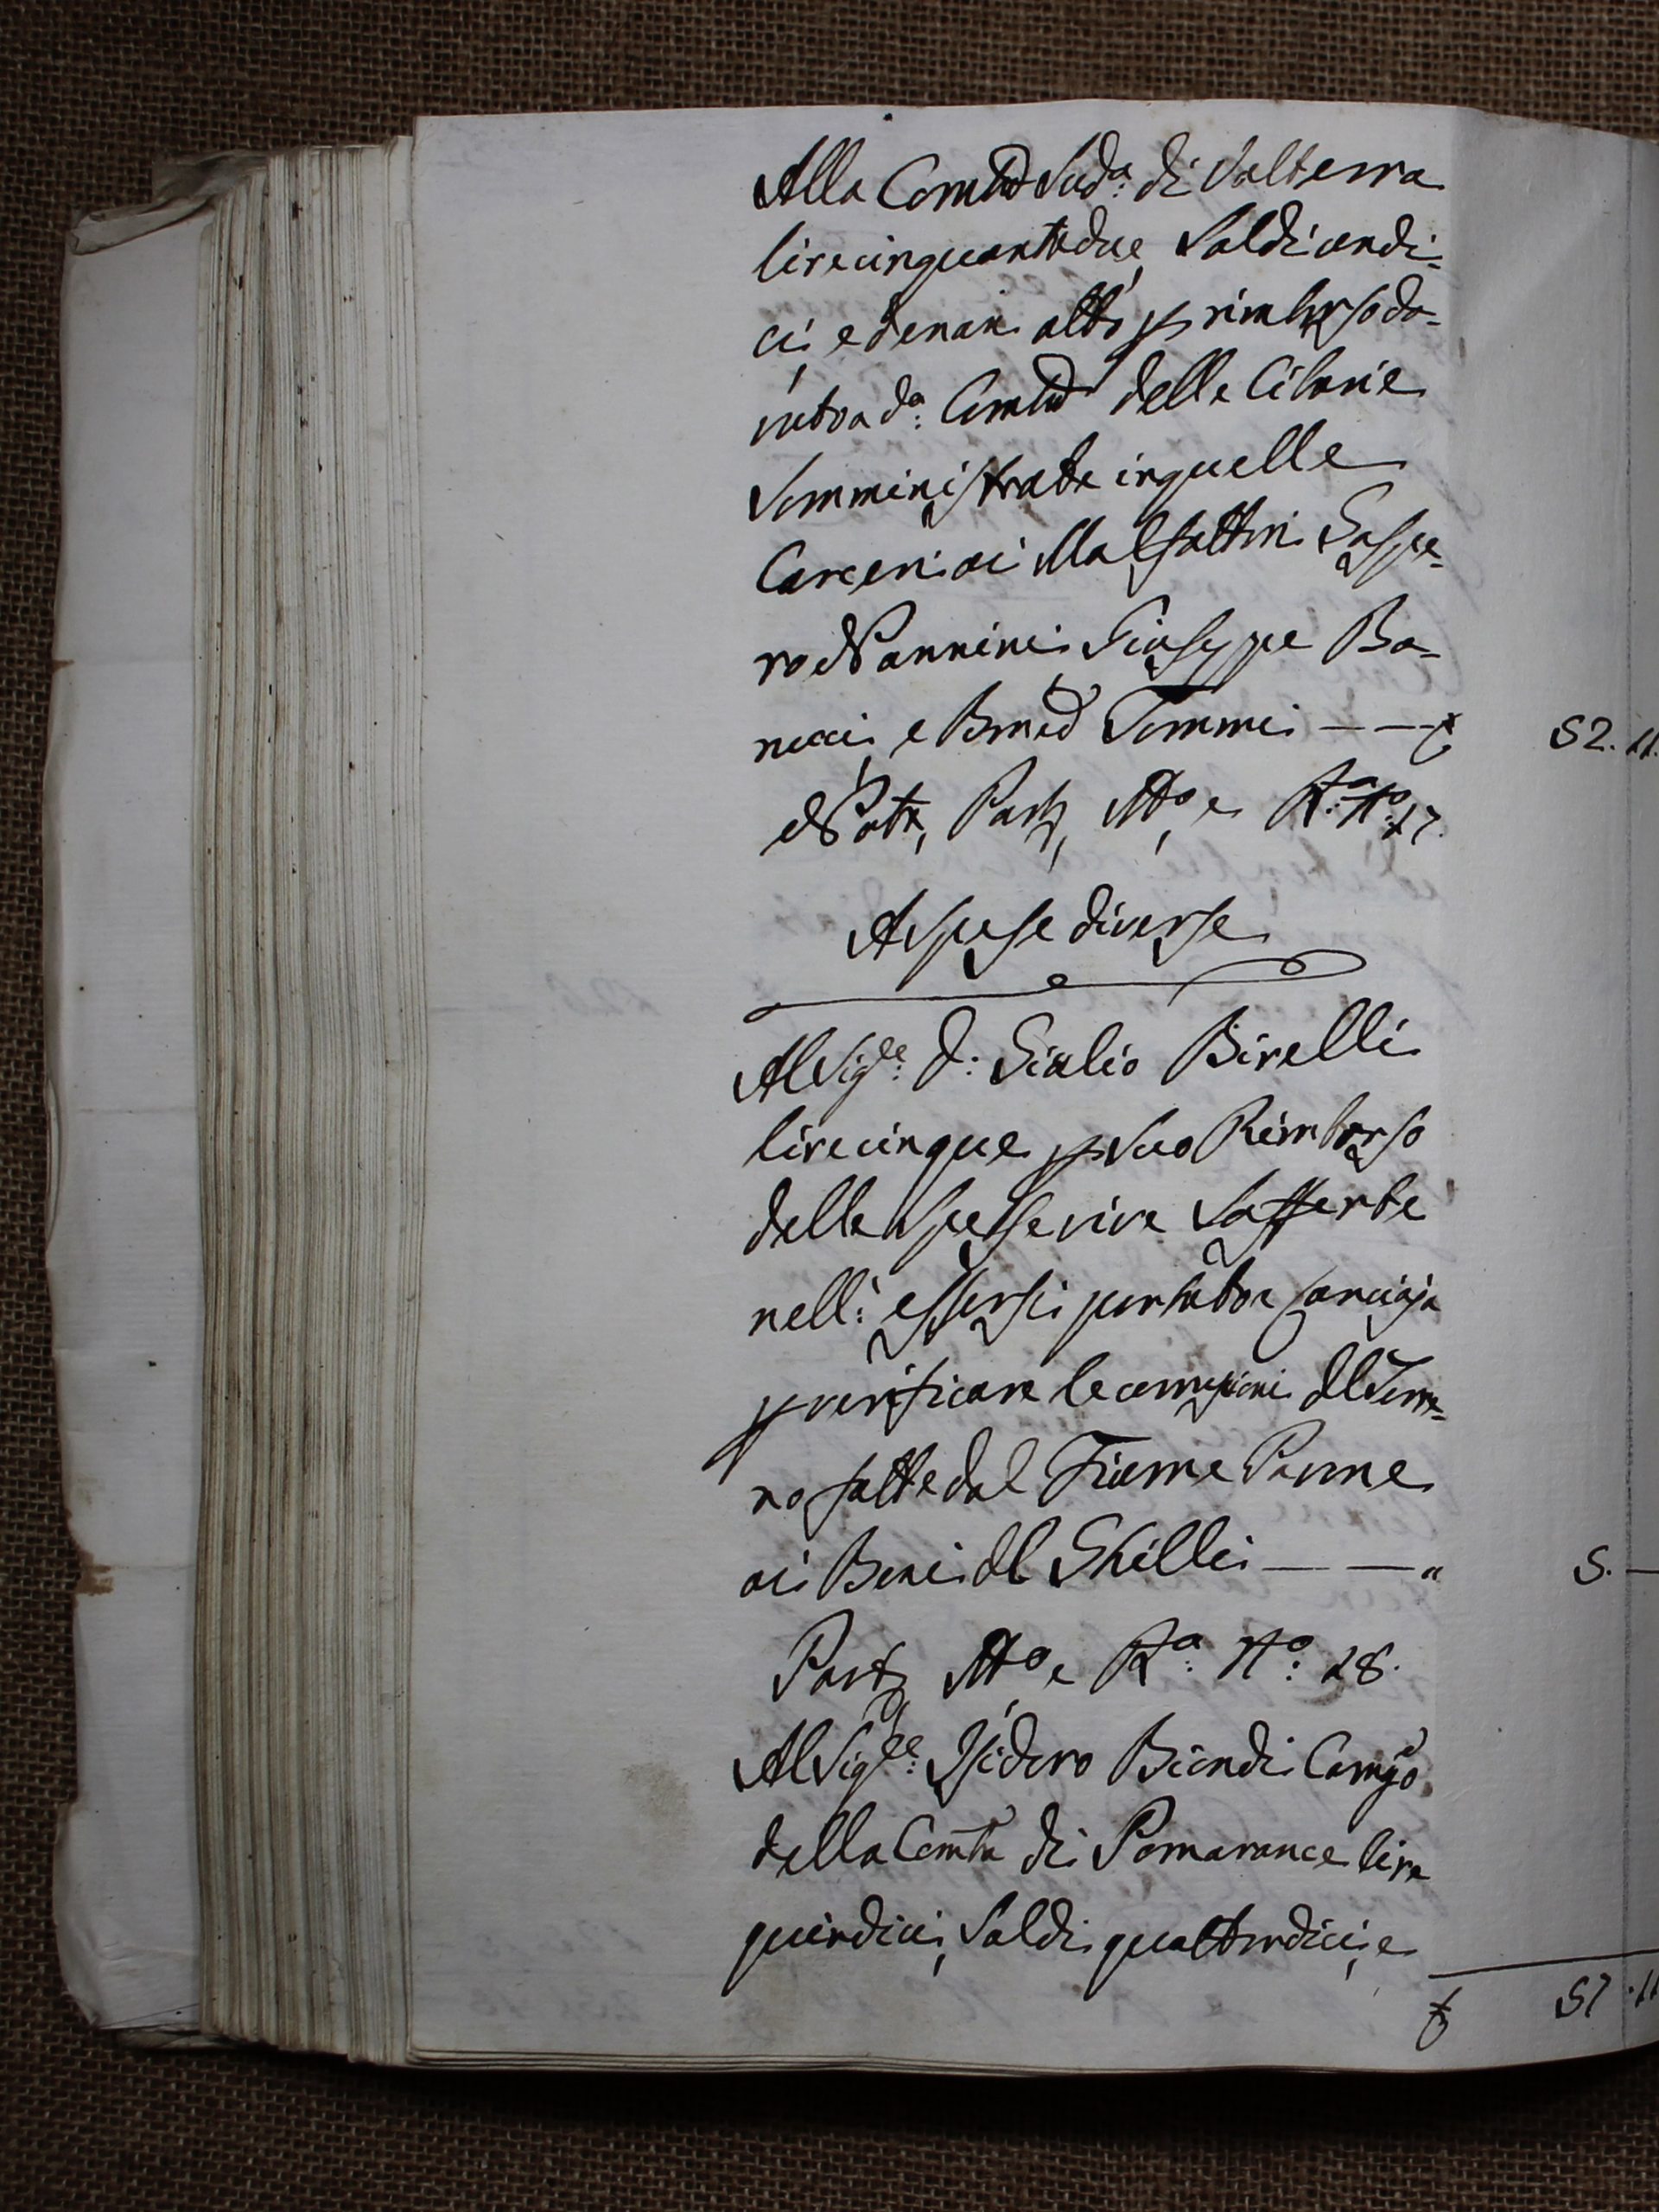 Alla Com̃tà Sud.ª di Volterra
lire cinquantadue, Soldi undi-
ci, e denari otto p rimborso do-
vuto a d.ª Com̃tà delle Cibarie
Somministrate in quelle
Carceri ai Malfattori Gaspe-
ro Nannini, Giuseppe Ba-
rucci, e Tommi — — £ 52. 11.
Not, Part, Mto, e R.ª N.º 27.
A Spese diverse
Al Sig.re D: Giulio Birelli
lire cinque p Suo Rimborso
delle Spese vive Sofferte
nell' essersi portato a
p verificare le corrosioni del Terre-
no fatte dal Fiume Pavone
ai Beni del Ghilli — — " 5. —
Part, Mto e R.ª N.º 28.
Al Sig.re Isidoro Biondi Camgo
della Com̃tà di Pomarance lire
quindici, Soldi quattordici, e
£ 57. 11